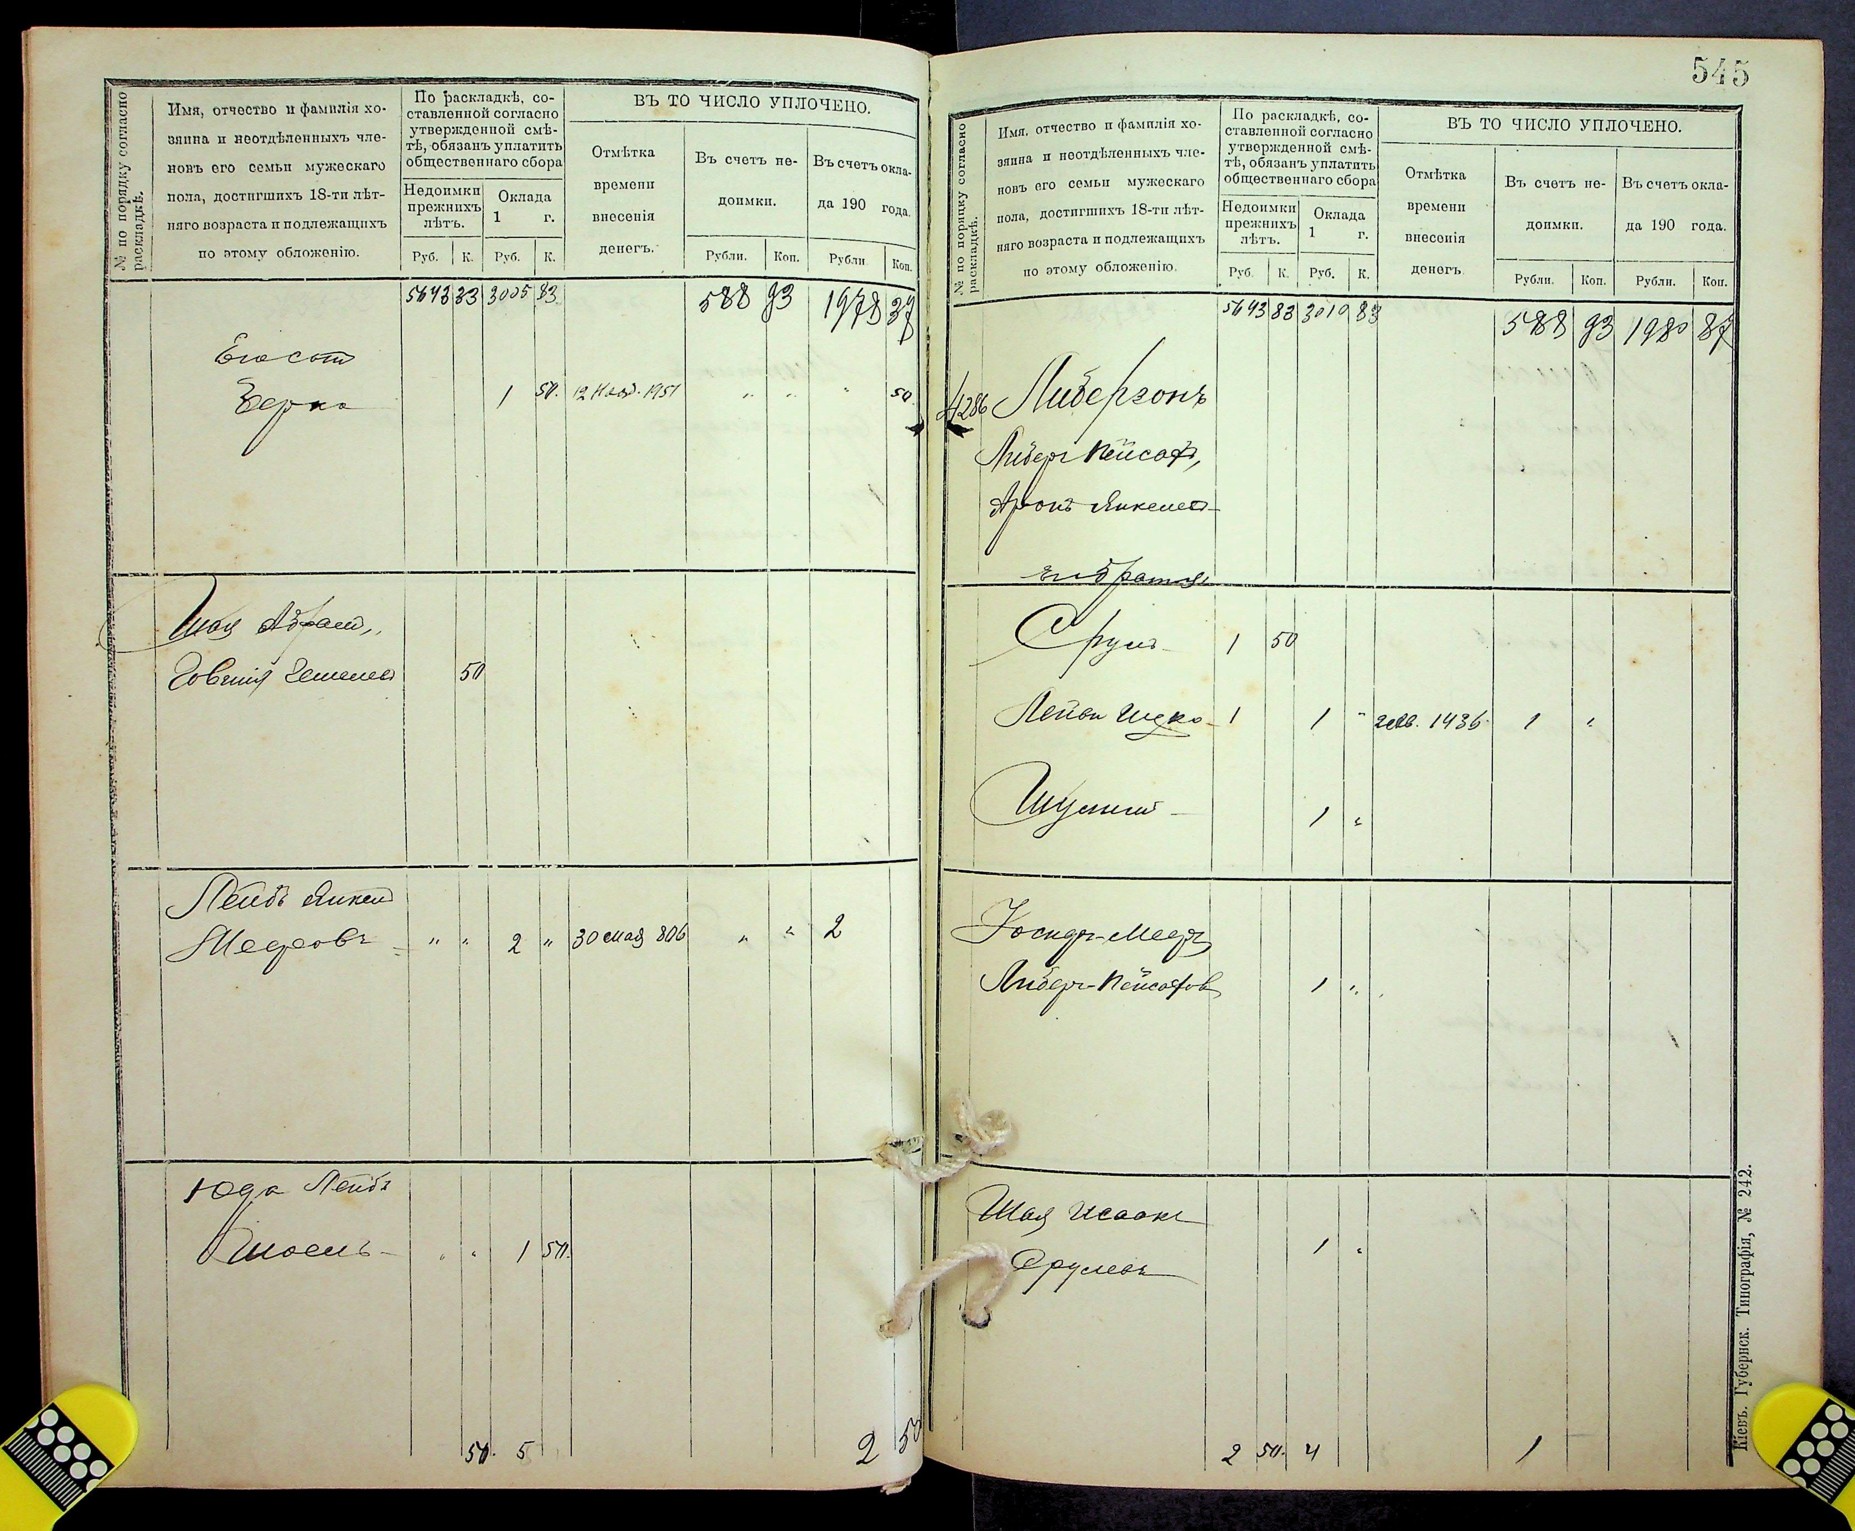 № по порядку согласно
раскладкѣ.
Имя, отчество и фамилія хо-
зяина и неотдѣленныхъ чле-
новъ его семьи мужескаго
пола, достигшихъ 18-ти лѣт-
няго возраста и подлежащихъ
по этому обложенію.
По раскладкѣ, со-
ставленной согласно
утвержденной смѣ-
тѣ, обязанъ уплатить
общественнаго сбора
Недоимки
прежнихъ
лѣтъ.
Оклада
1 г.
Руб. К. Руб. К.
ВЪ ТО ЧИСЛО УПЛОЧЕНО.
Отмѣтка
времени
внесенія
денегъ.
Въ счетъ не-
доимки.
Въ счетъ окла-
да 190 года.
Рубли. Коп. Рубли Коп.
5643 33 3005 83 588 93 1978 37
Его сынъ
Берко 1 50. 12 Нояб. 1951 " " " 50.
Шая Абрам
50
Лейбъ Янкел
Мееровъ " " 2 " 30 мая 806 " " 2
Юда Лейбъ
Шоель " " 1 50.
50. 5 2 50
545
№ по порядку согласно
раскладкѣ.
Имя, отчество и фамилія хо-
зяина и неотдѣленныхъ чле-
новъ его семьи мужескаго
пола, достигшихъ 18-ти лѣт-
няго возраста и подлежащихъ
по этому обложенію.
По раскладкѣ, со-
ставленной согласно
утвержденной смѣ-
тѣ, обязанъ уплатить
общественнаго сбора
Недоимки
прежнихъ
лѣтъ.
Оклада
1 г.
Руб. К. Руб. К.
ВЪ ТО ЧИСЛО УПЛОЧЕНО.
Отмѣтка
времени
внесенія
денегъ.
Въ счетъ не-
доимки.
Въ счетъ окла-
да 190 года.
Рубли. Коп. Рубли. Коп.
5643 83 3010 83 588 93 1980 87
1286 Либерзонъ
Либеръ Пейсах,
Аронъ Янкелев
его братья
Сруль 1 50
Лейви Ицко 1 1 " 1436 1 "
Шулим 1 "
Иосифъ-Меер
Либеръ-Пейсахов 1 "
Шая Исаакъ
Срулевъ 1 "
2 50. 4 1
Кіевъ. Губернск. Типографія, № 242.